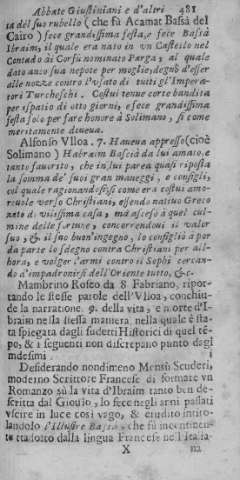 Abbate Giustiniani e d'altri 481
ta del suo rubello (che fù Acamat Bassà del
Cairo) fece grandissima festa, e fece Bassà
Ibraim, il quale era nato in vn Castello nel
Contado di Corfù nominato Parga, al quale
dato anco sua nepote per moglie, degnò d'esser
alle nozze contro l'vsato di tutti gl'Impera-
tori Turcheschi. Costui tenne corte bandita
per spatio di otto giorni, e fece grandissima
festa solo per fare honore à Solimano, si come
meritamente diueua.
Alfonso Vlloa. 7. Haueua appresso (cioè
Solimano) Habraim Bascià da lui amato, e
tanto fauorito, che in lui parea quasi riposta
la somma de' suoi gran maneggi, e consigli,
col quale ragionandosi come era costui amo-
reuole verso Christiani, essendo natiuo Greco
nato di vilissima casa, mà asceso à quel cul-
mine delle fortune, concorrendoui il valor
suo, & il suo buon'ingegno, lo consigliò à por
da parte lo sdegno contra Christiani per all-
hora, e volger l'armi contro il Sophi cercan-
do d'impadronirsi dell'Oriente tutto, &c.
Mambrino Roseo da 8 Fabriano, ripor-
tando le stesse parole dell'Vlloa, conchiu-
de la narratione 9. della vita, e morte d'I-
braim nella stessa maniera nella quale è sta-
ta spiegata dagli sudetti Historici di quel tẽ-
po, & i seguenti non discrepano punto dagl
medesimi.
Desiderando nondimeno Monsù Scuderi,
moderno Scrittore Francese di formare vn
Romanzo sù la vita d'Ibraim tanto ben de-
scritta dal Giouio, lo fece negli anni passati
vscire in luce così vago, & erudito intito-
landolo l'Illustre Bassà, che fù incontinen-
te tradotto dalla lingua Francese nell'Italia-
X na